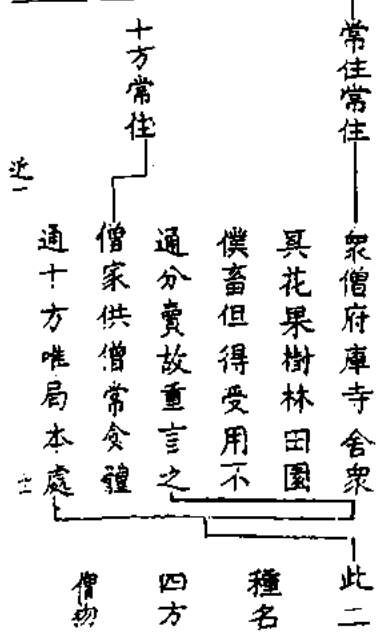 常住常住
衆僧府庫寺舍衆
具花果樹林田園
僕畜但得受用不
通分賣故重言之
十方常住
僧家供僧常食體
通十方唯局本處
此二
種名
四方
僧物
近一